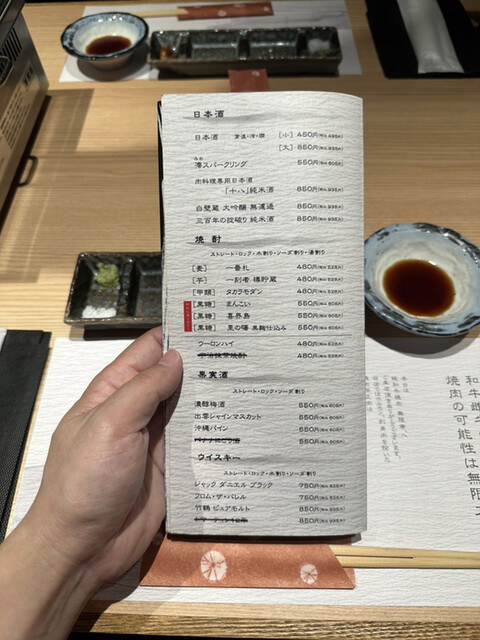 日本酒
日本酒 常温・冷・燗 [小] 450円(税込495円)
[大] 850円(税込935円)
みお
澪スパークリング 550円(税込605円)
肉料理専用日本酒
「十八」純米酒 850円(税込935円)
白壁蔵 大吟醸 無濾過 850円(税込935円)
三百年の掟破り 純米酒 850円(税込935円)
焼酎
ストレート・ロック・水割り・ソーダ割り・湯割り
[麦] 一番札 480円(税込528円)
[芋] 一刻者 樽貯蔵 480円(税込528円)
[甲類] タカラモダン 480円(税込528円)
[黒糖] まんこい 550円(税込605円)
[黒糖] 喜界島 550円(税込605円)
[黒糖] 里の曙 黒麹仕込み 550円(税込605円)
ウーロンハイ 480円(税込528円)
宇治抹茶焼酎 480円(税込528円)
果実酒
ストレート・ロック・ソーダ割り
濃醇梅酒 550円(税込605円)
出雲シャインマスカット 550円(税込605円)
沖縄パイン 550円(税込605円)
バナナにごり酒 550円(税込605円)
ウイスキー
ストレート・ロック・水割り・ソーダ割り
ジャック ダニエル ブラック 750円(税込825円)
フロム・ザ・バレル 750円(税込825円)
竹鶴 ピュアモルト 850円(税込935円)
850円(税込935円)
和牛雌牛
焼肉の可能性は無限大